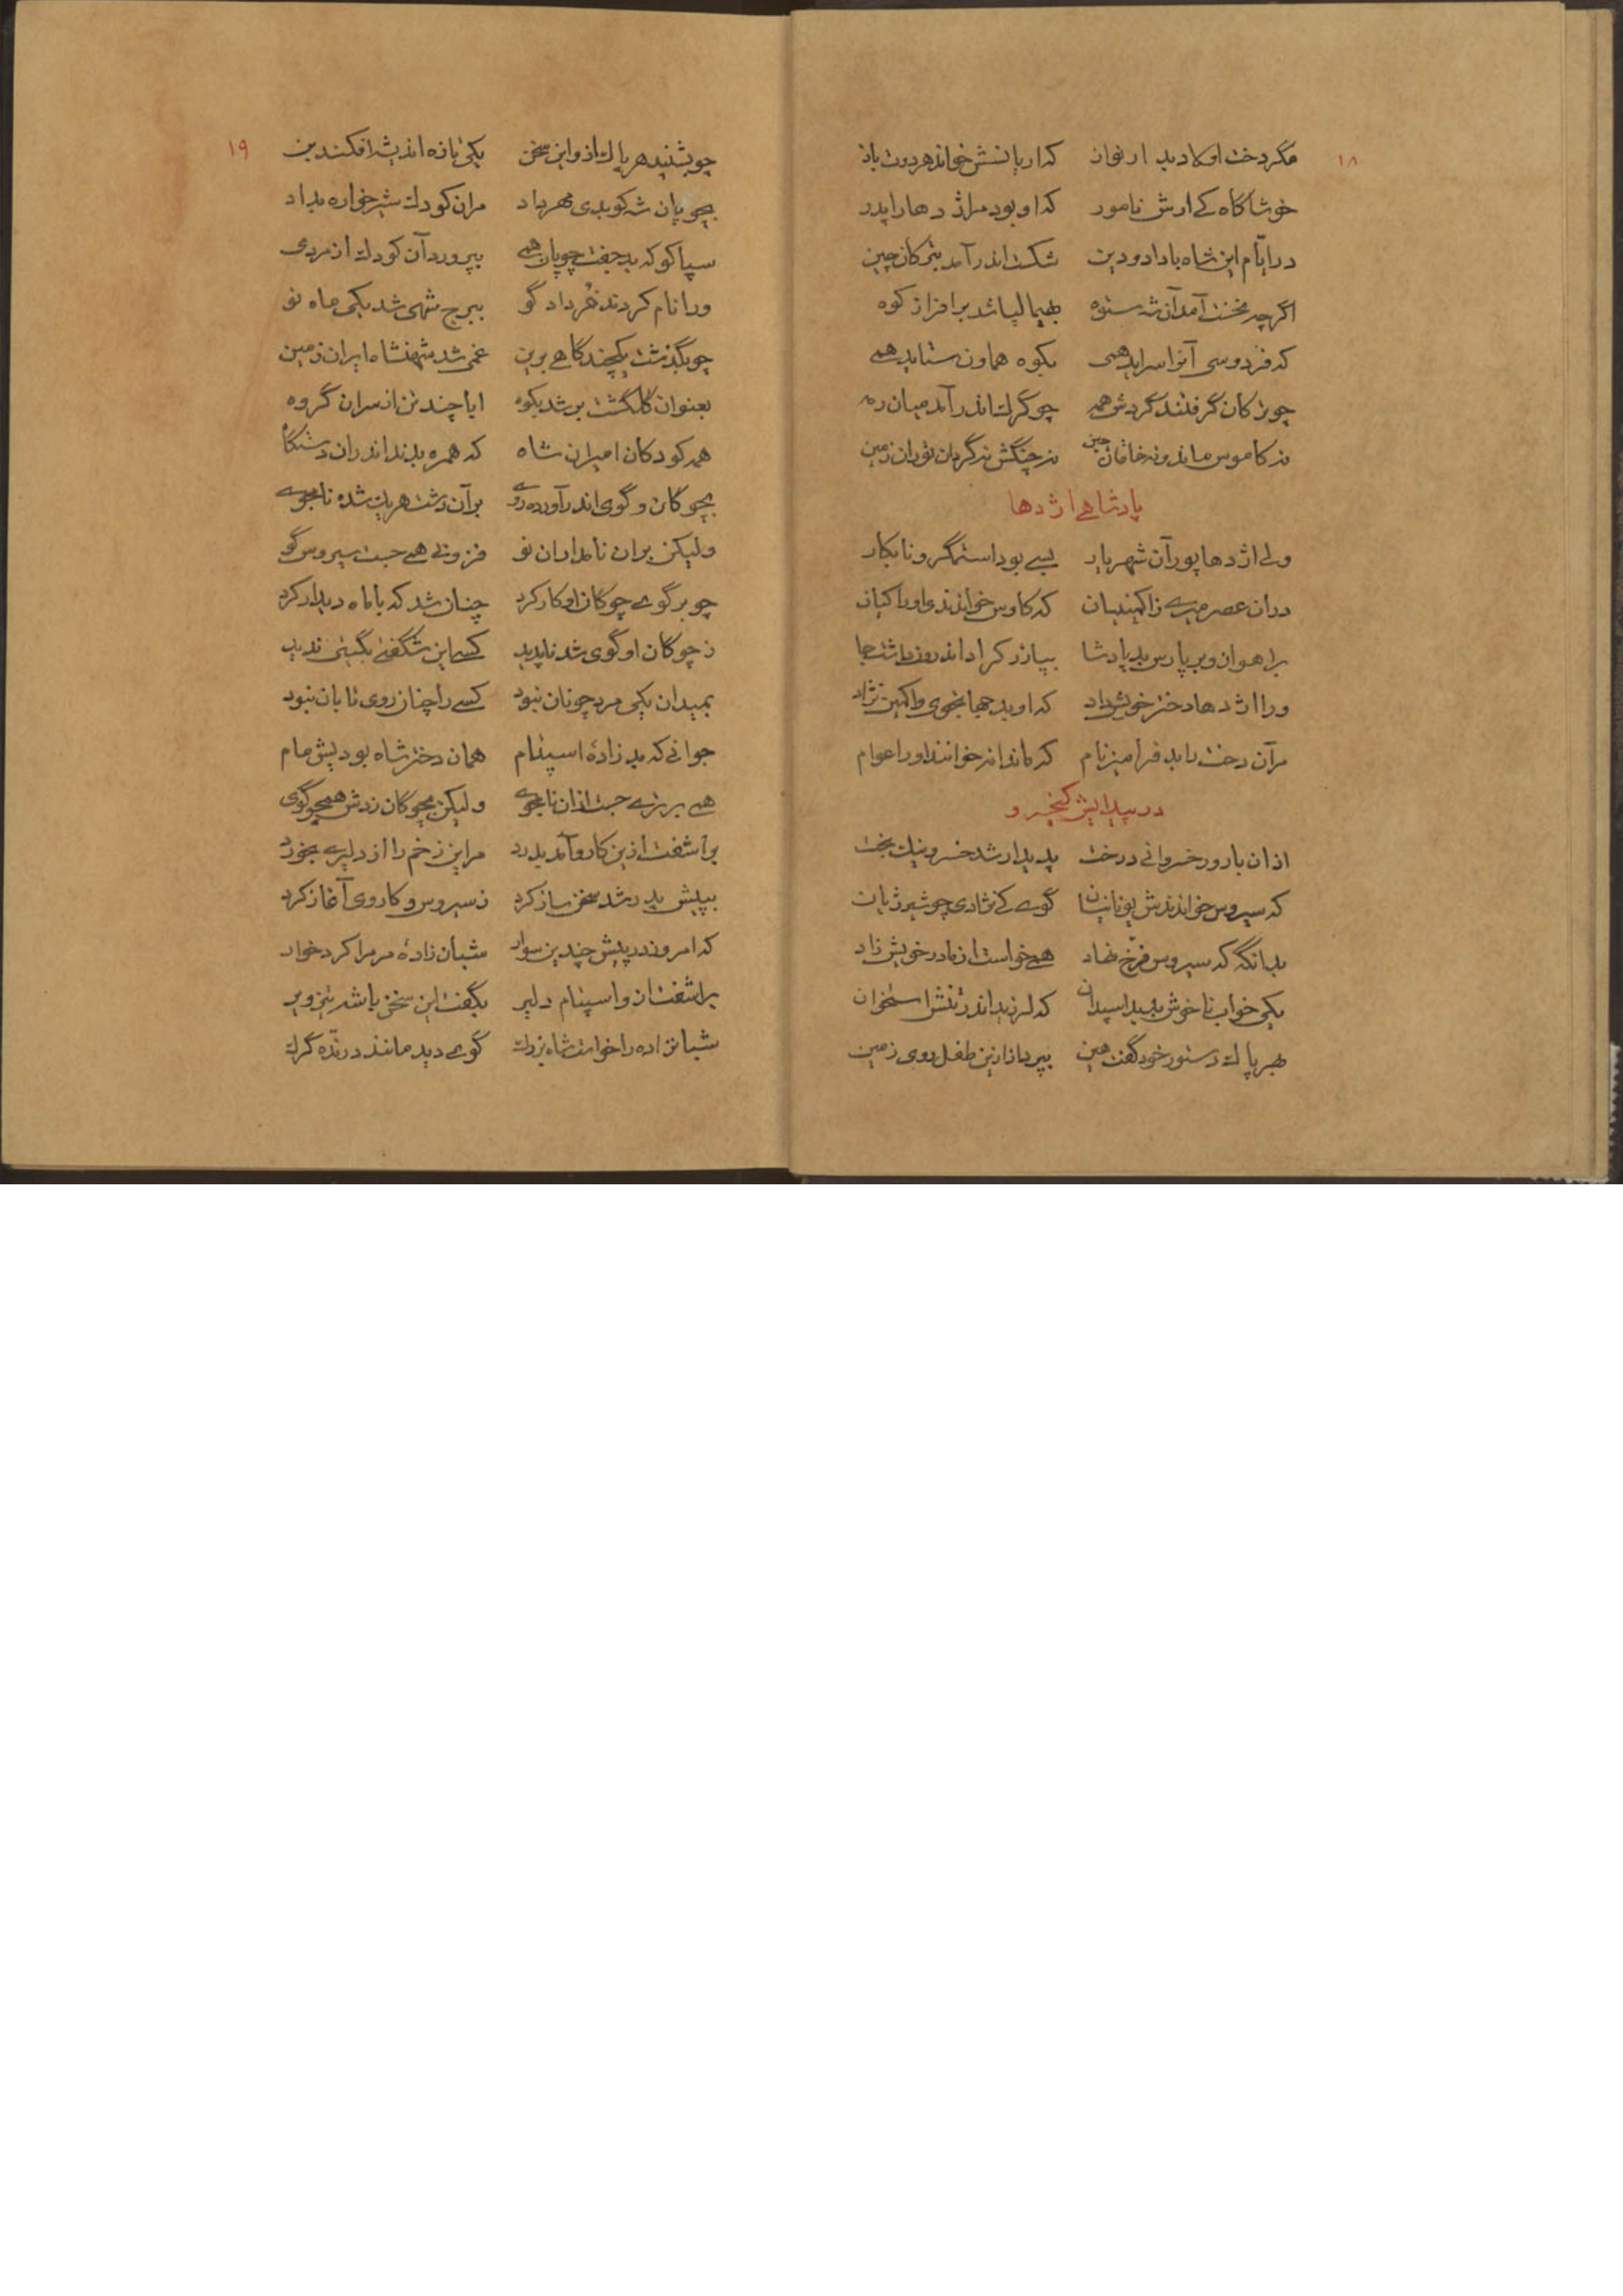 ۱۸
مگر دخت او کاد بد ارنواز که اریانسش خواند هردوت باز
خوشا گاه کی ارش نامور که او بود مر اژدها را پدر
در ایّام این شاه با داد و دین شکست اندر آمد بترکان چین
اگرچه نخست آمد آن شه ستوه بهیمالیا شد بر افراز کوه
که فردوسی آنرا سراید همی بکوه هماون ستاید همی
چو ترکان گرفتند گردش همه چو گرگ اندر آمد میان رمه
نه کاموس ماند و نه خاقان چین نه چنگش نه گردان توران زمین
پادشاهی اژدها
ولی اژدها پور آن شهریار بسی بود استمگر و نابکار
در آن عصر میری ز اکمنیان که کاوس خواندندی او را کیان
براهوان و بر پارس بد پادشا بپازرکراد اندرون داشت جا
ورا اژدها دختر خویش داد که او بد جهانجوی و اکمین نژاد
مر آن دخت را بد فرامیز نام که ماندانه خوانند او را عوام
در پیدایش کیخسرو
از آن بارور خسروانی درخت پدیدار شد خسرو نیک بخت
که سیروس خواندندش یونانیان گوی کی نژادی چو شیر ژیان
بدانگه که سیروس فرّخ نهاد همی خواست از مادر خویش زاد
یکی خواب ناخوش بدید اسپدان که لرزید اندر تنش استخوان
بهرپاک دستور خود گفت هین بپرداز ازین طفل روی زمین
۱۹
چو بشنید هرپاک ازو این سخن یکی تازه اندیشه افکند بن
بچوپان شه کو بدی مهرداد مران کودک شیرخواره بداد
سپاکو که بد جفت چوپان همی بپرورد آن کودک از مردمی
ورا نام کردند خرداد گو ببرج شهی شد یکی ماه نو
چو بگذشت یکچند گاهی برین غمی شد شهنشاه ایران زمین
بعنوان گلگشت بر شد بکوه ابا چند تن از سران گروه
همه کودکان امیران شاه که همره بدند اندران دشتگاه
بچوگان و گوی اندر آورده روی بر آن دشت هر یک شده نامجوی
ولیکن بران نامداران نو فزونی همی جست سیروس گو
چو بر گوی چوگان او کار کرد چنان شد که با ماه دیدار کرد
ز چوگان او گوی شد ناپدید کسی این شگفتی بگیتی ندید
بمیدان یکی مرد چونان نبود کسی را چنان روی تابان نبود
جوانی که بد زادهٔ اسپنام همان دختر شاه بودیش مام
همی برتری جست ازان نامجوی ولیکن بچوگان زدش همچو گوی
براشفت ازین کار و آمد بدرد مر این زخم را از دلیری بخورد
بپیش پدر شد سخن ساز کرد ز سیروس و کار وی آغاز کرد
که امروز در پیش چندین سوار شبان زادهٔ مر مرا کرد خوار
براشفت ازو اسپنام دلیر بگفت این سخن با شه تیزویر
شبانزاده را خواست شاه بزرک گوی دید مانند درنده گرک